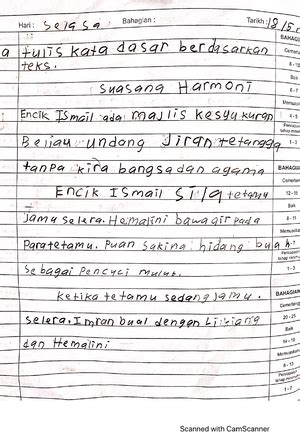 Hari: Selasa Bahagian: Tarikh: 18/5
a tulis kata dasar berdasarkan
teks.
Suasana Harmoni
Encik Ismail ada majlis kesyukuran
Beliau undang Jiran tetangga
tanpa kira bangsa dan agama
Encik Ismail sila tetamu
Jamu selera. Hemalini bawa gir pada
Para tetamu. Puan Sakina hidang buah
Sebagai Pencuci mulut.
ketika tetamu sedang Jamu.
Selera. Imran bual dengan
dan Hemalini
BAHAGIAN
Cemerlang
8 - 10
Baik
6 - 7
Memuaskan
4 - 5
1 - 3
BAHAGIAN
Cemerlang
12 - 15
Baik
8 - 11
Memuaskan
4 - 7
1 - 3
BAHAGIAN
Cemerlang
20 - 25
Baik
14 - 19
Memuaskan
8 - 13
1 - 7
Scanned with CamScanner